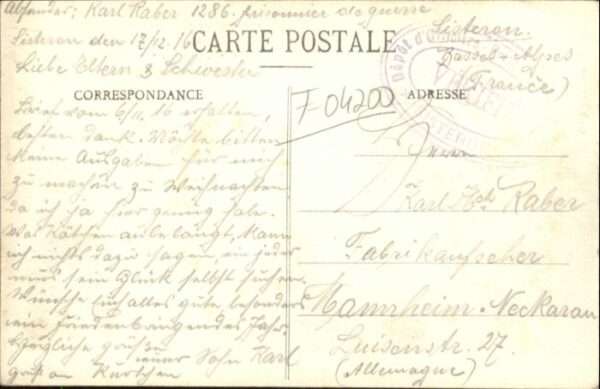 Absender: Karl Raber 1286. prisonnier de guerre
Sisteron.
Basses-Alpes
(France)
Sisteron den 17/12.16
CARTE POSTALE
Liebe Eltern & Schwester
CORRESPONDANCE
ADRESSE
F 04200
Brief vom 6/11. 16 erhalten,
besten dank. Möchte bitten
keine Ausgaben für mich
zu machen zu Weihnachten
da ich ja hier genug habe.
Was Käthchen anbelangt, kann
ich nichts dazu sagen, ein jeder
mus sein Glück selbst suchen.
Wünsche Euch alles gute besonders
ein Friedenbringendes Jahr.
Herzliche grüße
euer Sohn Karl
gruß an Kurtchen
Dépôt d'
Herrn
Karl Hch Raber
Fabrikaufseher
Mannheim-Neckarau
Luisenstr. 27.
(Allemagne)